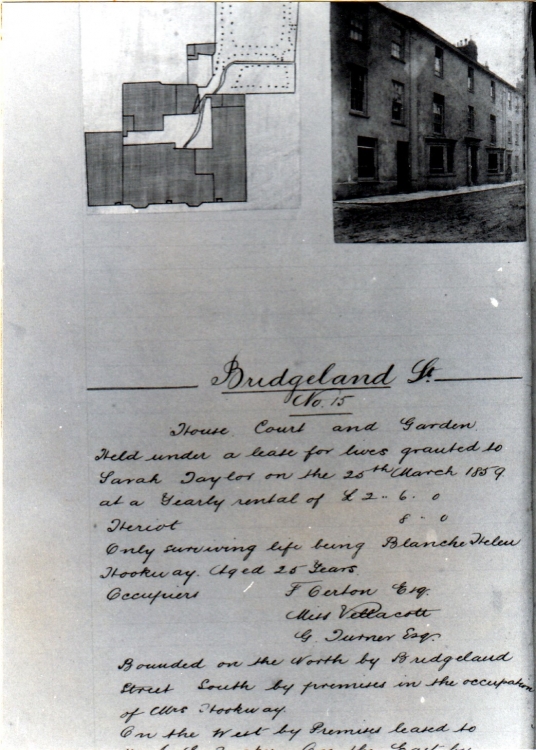 Bridgeland St
No. 15
House, Court and Garden
Held under a lease for lives granted to
Sarah Taylor on the 25th March 1859
at a Yearly rental of £ 2 .. 6 . 0
Heriot 8 . 0
Only surviving life being Blanche Helen
Hookway. Aged 25 Years.
Occupiers F Certon Esq.
Miss Vellacott
G. Turner Esq.
Bounded on the North by Bridgeland
Street South by premises in the occupation
of Mrs Hookway.
On the West by Premises leased to
on the East by